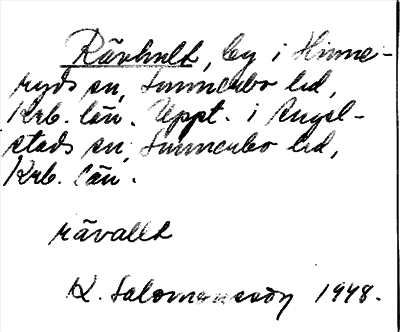 Rävhult, by i Hinne-
ryds sn, Sunnerbo hd,
Krb. län. Uppt. i Angel-
stads sn, Sunnerbo hd,
Krb. län.
rävallt
K. Salomonsson 1948.